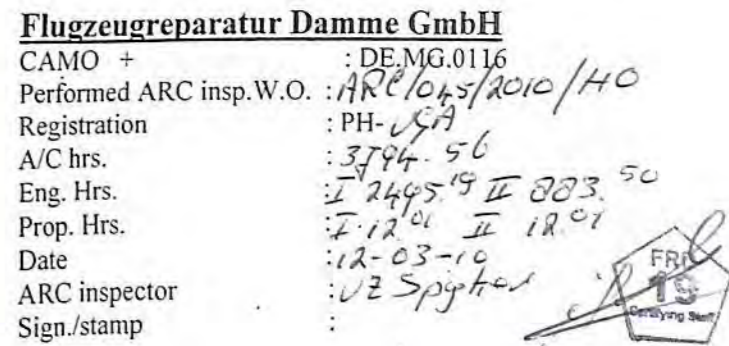 Flugzeugreparatur Damme GmbH
CAMO + : DE.MG.0116
Performed ARC insp.W.O. : ARC/045/2010/HO
Registration : PH-
A/C hrs. : 3794.56
Eng. Hrs. : I 2495.19 II 883.50
Prop. Hrs. : I.12.01 II 12.01
Date : 12-03-10
ARC inspector :
Sign./stamp :
FRD
19
Certifying Staff